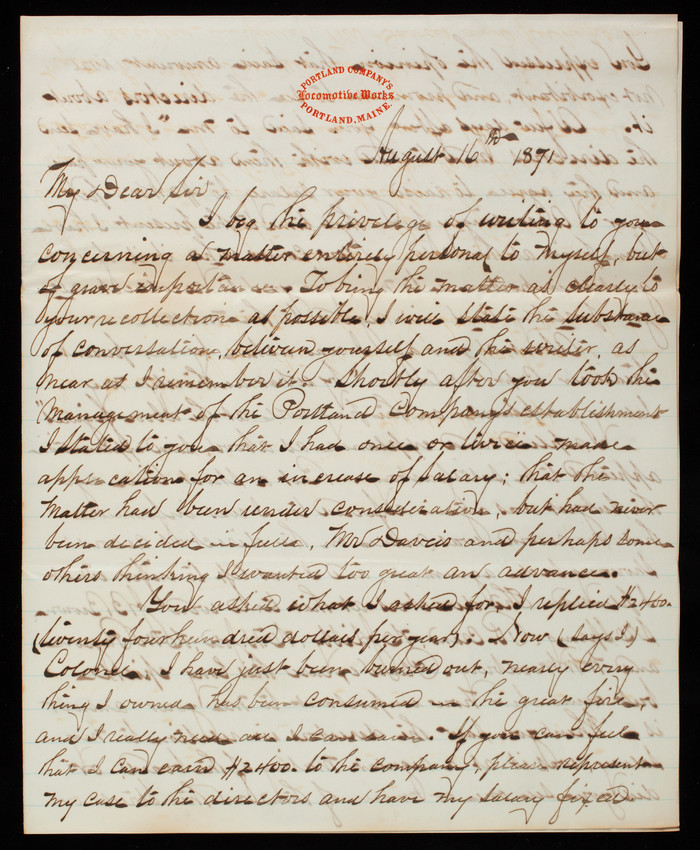 PORTLAND COMPANY'S
Locomotive Works
PORTLAND, MAINE.
August 16th 1871
My Dear Sir
I beg the privilege of writing to you
concerning a matter entirely personal to myself, but
of grave importance. To bring the matter as clearly to
your recollection as possible, I will state the substance
of conversation, between yourself and the writer, as
near as I remember it. Shortly after you took the
management of the Portland Company's establishment
I stated to you that I had once or twice made
application for an increase of salary; that the
matter had been under consideration, but had never
been decided in full, Mr Davis and perhaps some
others thinking I wanted too great an advance.
You asked what I asked for, I replied $2400.
(twenty four hundred dollars per year). Now (says I)
Colonel, I have just been burned out, nearly every
thing I owned has been consumed in the great fire,
and I really need all I can earn. If you can feel
that I can earn $2400. to the company, please represent
my case to the directors and have my salary fixed